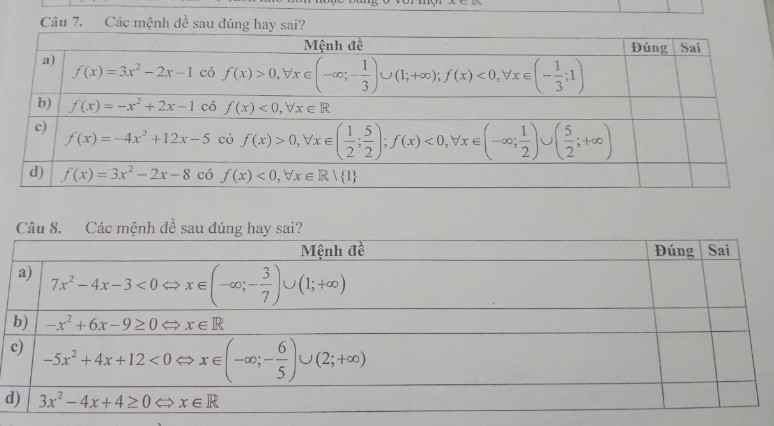 Câu 7. Các mệnh đề sau đúng hay sai?
Mệnh đề Đúng Sai
a) f(x) = 3x² − 2x − 1 có f(x) > 0, ∀x ∈ (−∞; −1/3) ∪ (1; +∞); f(x) < 0, ∀x ∈ (−1/3; 1)
b) f(x) = −x² + 2x − 1 có f(x) < 0, ∀x ∈ ℝ
c) f(x) = −4x² + 12x − 5 có f(x) > 0, ∀x ∈ (1/2; 5/2); f(x) < 0, ∀x ∈ (−∞; 1/2) ∪ (5/2; +∞)
d) f(x) = 3x² − 2x − 8 có f(x) < 0, ∀x ∈ ℝ \ {1}
Câu 8. Các mệnh đề sau đúng hay sai?
Mệnh đề Đúng Sai
a) 7x² − 4x − 3 < 0 ⇔ x ∈ (−∞; −3/7) ∪ (1; +∞)
b) −x² + 6x − 9 ≥ 0 ⇔ x ∈ ℝ
c) −5x² + 4x + 12 < 0 ⇔ x ∈ (−∞; −6/5) ∪ (2; +∞)
d) 3x² − 4x + 4 ≥ 0 ⇔ x ∈ ℝ